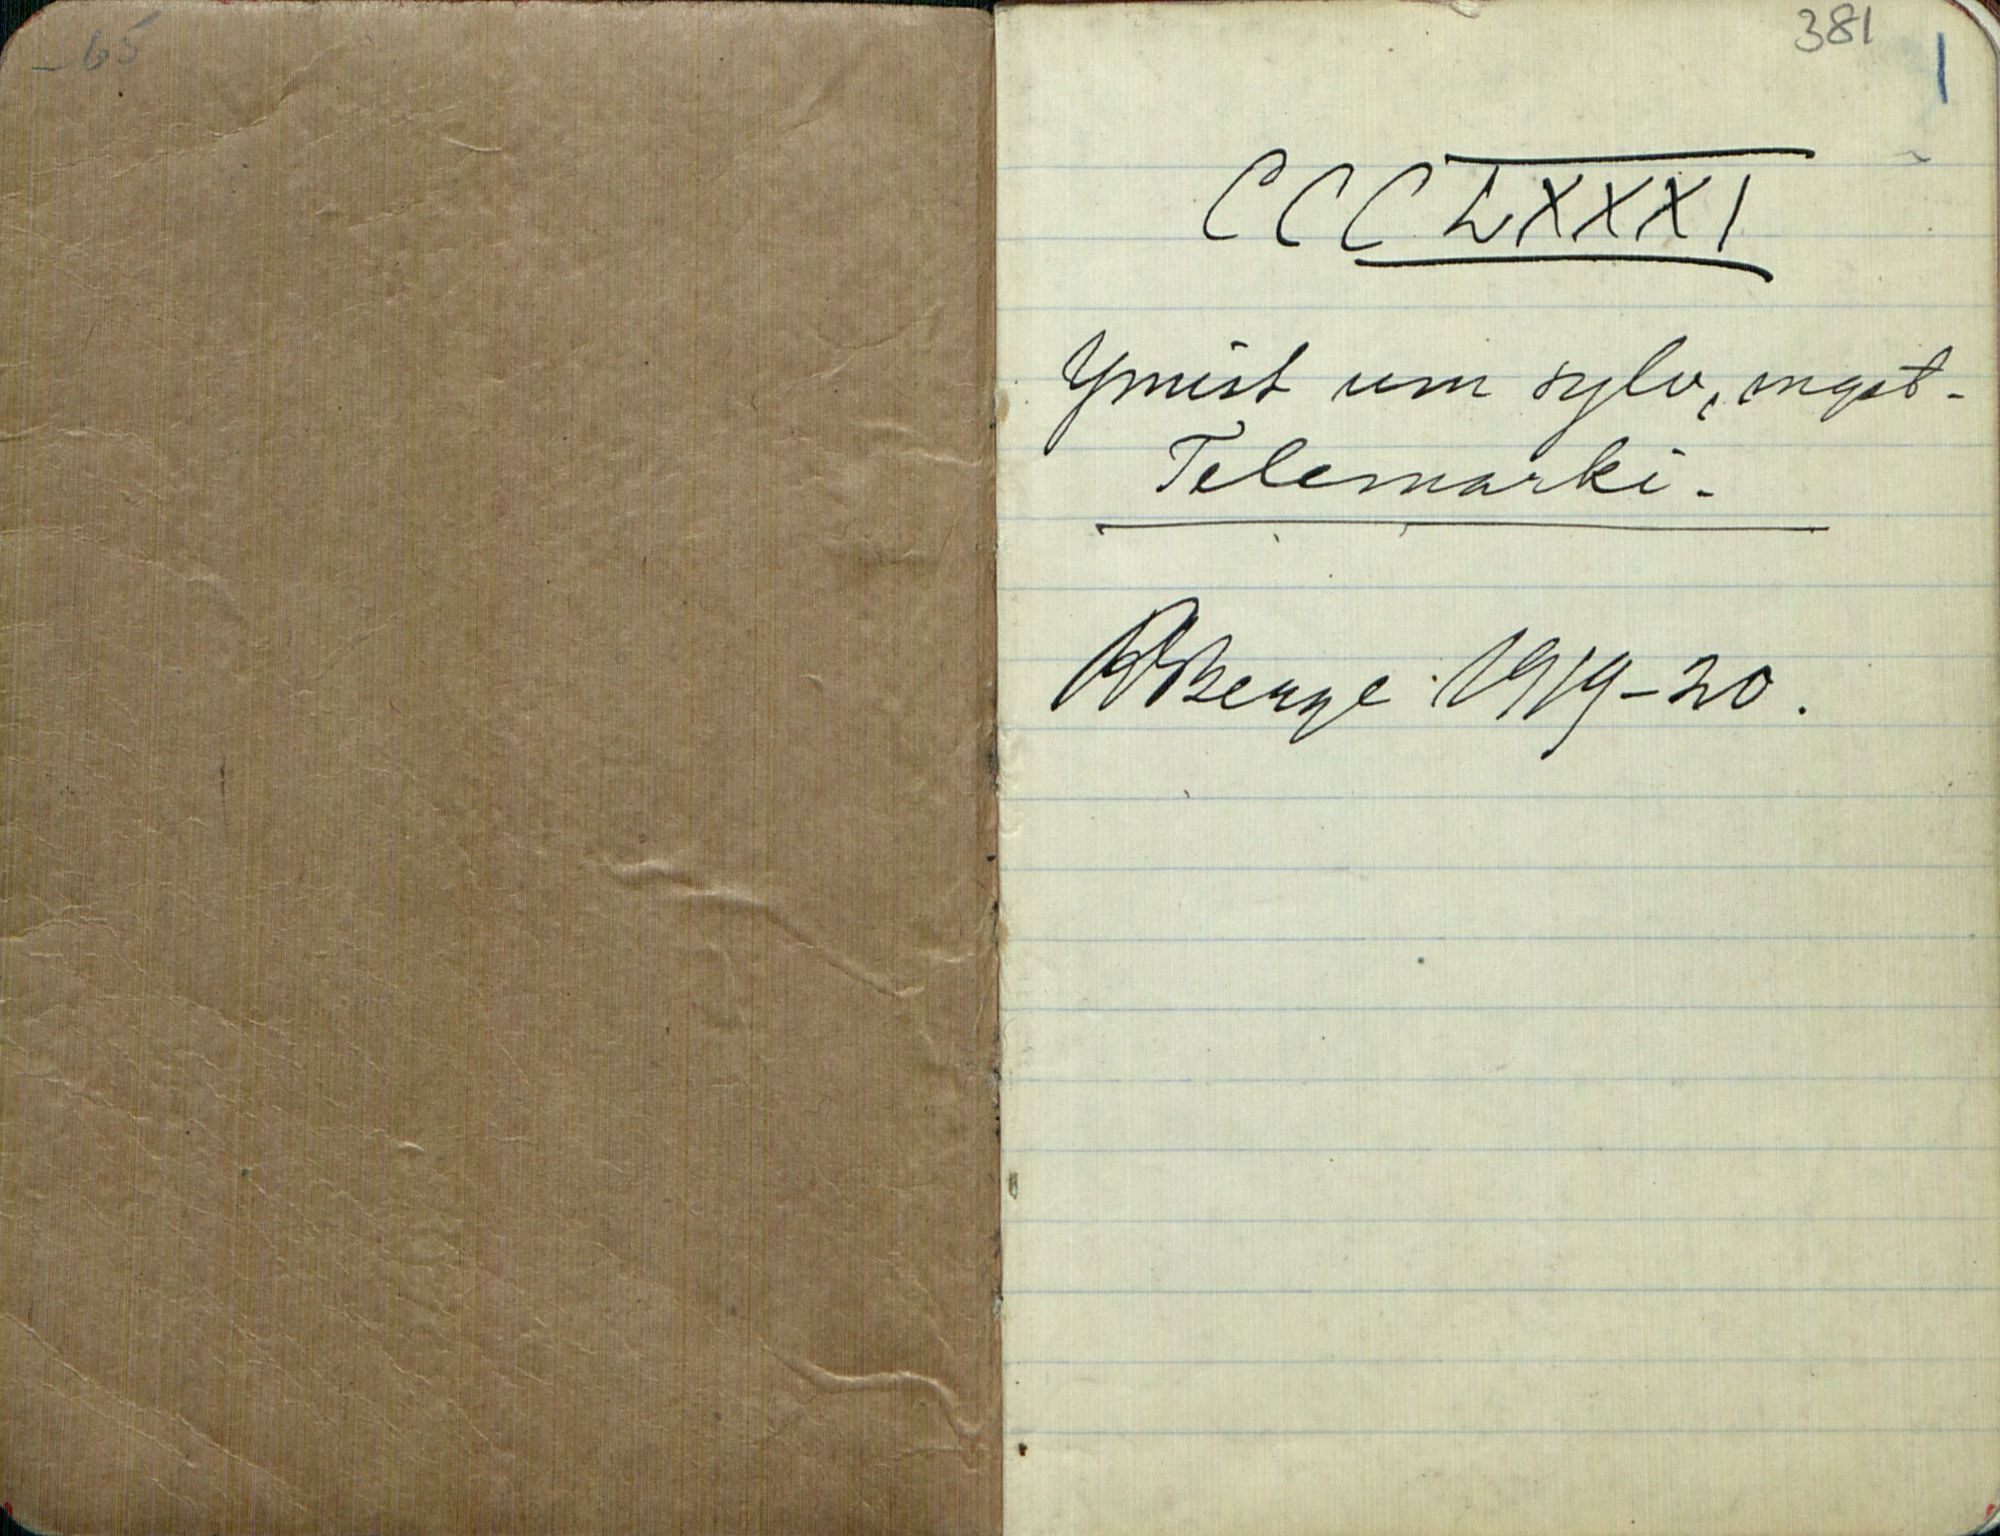 - 65
381
1
CCCLXXXI
Ymist um sylv, mest-
Telemarki.
RBerge. 1919-20.